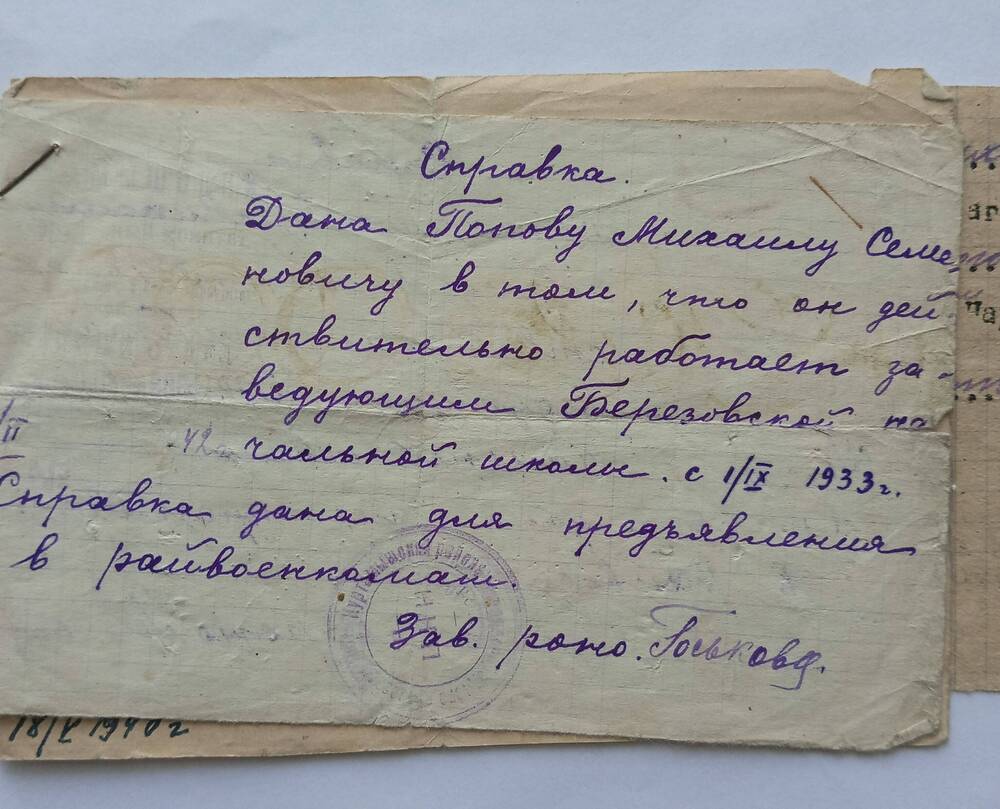 Справка.
Дана Попову Михаилу Семе
новичу в том, что он дей
ствительно работает за-
ведующим Березовской на
чальной школы. с 1/IX 1933 г.
/II
42
Справка дана для предъявления
в райвоенкомат.
Зав. роно. Госькова.
18/X 1940 г
аг
па